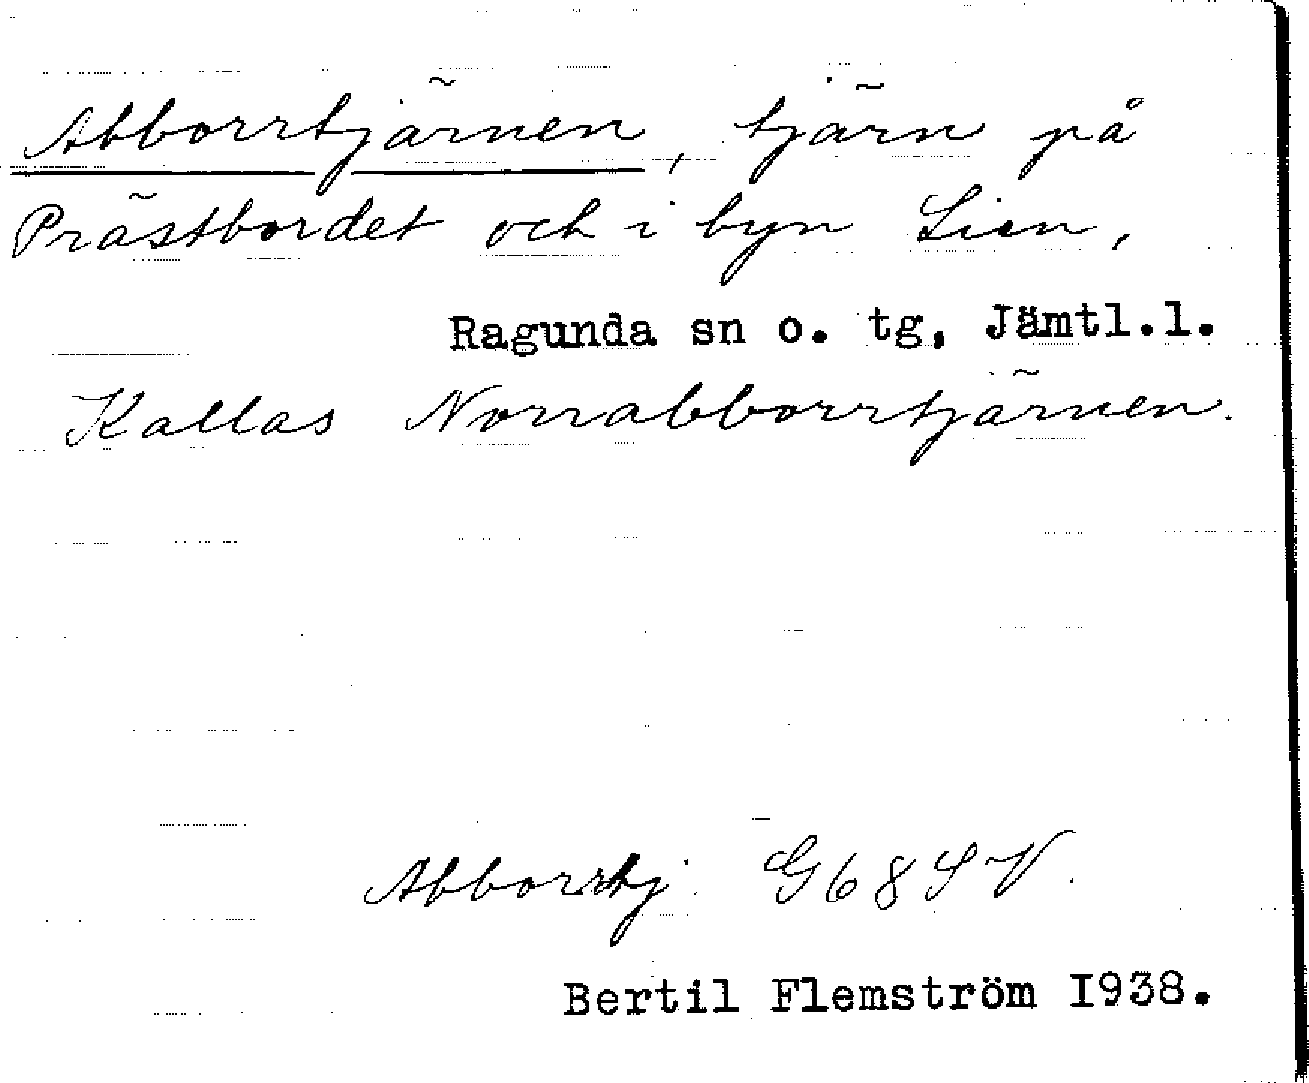 Abborrtjärnen, tjärn på
Prästbordet och i byn Lien,
Ragunda sn o. tg, Jämtl.l.
Kallas Norrabborrtjärnen.
Abborrtj. G68SV.
Bertil Flemström 1938.